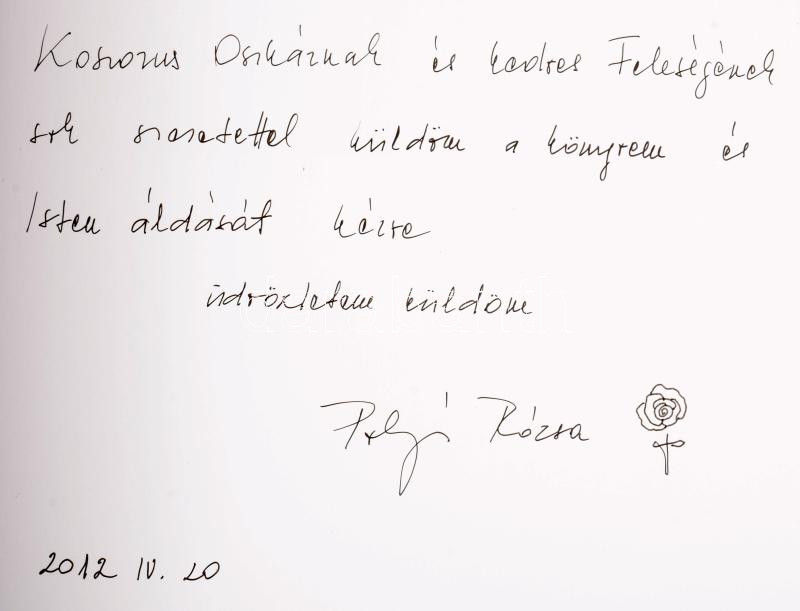 Koszorus Oszkárnak és kedves Feleségének
sok szeretettel küldöm a könyvem és
Isten áldását kérve
üdvözletem küldöm
Polyá Rózsa
2012 IV. 20